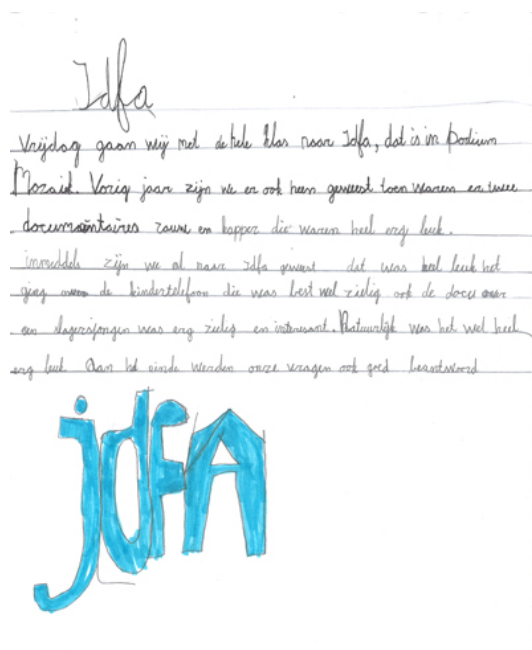 Idfa
Vrijdag gaan wij met de hele klas naar Idfa, dat is in Podium
Mozaïk. Vorig jaar zijn we er ook heen geweest toen waren er twee
documaintaires rauwe en kapper die waren heel erg leuk.
inmiddels zijn we al naar idfa geweest dat was heel leuk het
ging over de kindertelefoon die was best wel zielig ook de docu over
een slagersjongen was erg zielig en interesant. Natuurlijk was het wel heel
erg leuk Aan het einde werden onze vragen ook goed beantwoord
jdFA